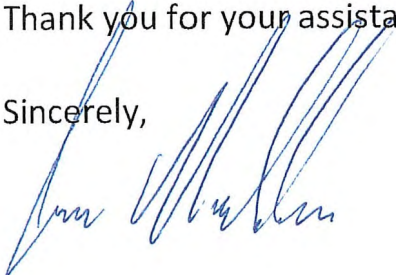 Thank you for your assista
Sincerely,